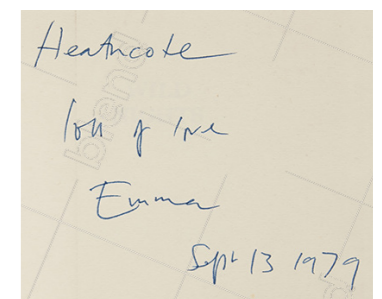 Heathcote
lots of love
Emma
Sept 13 1979